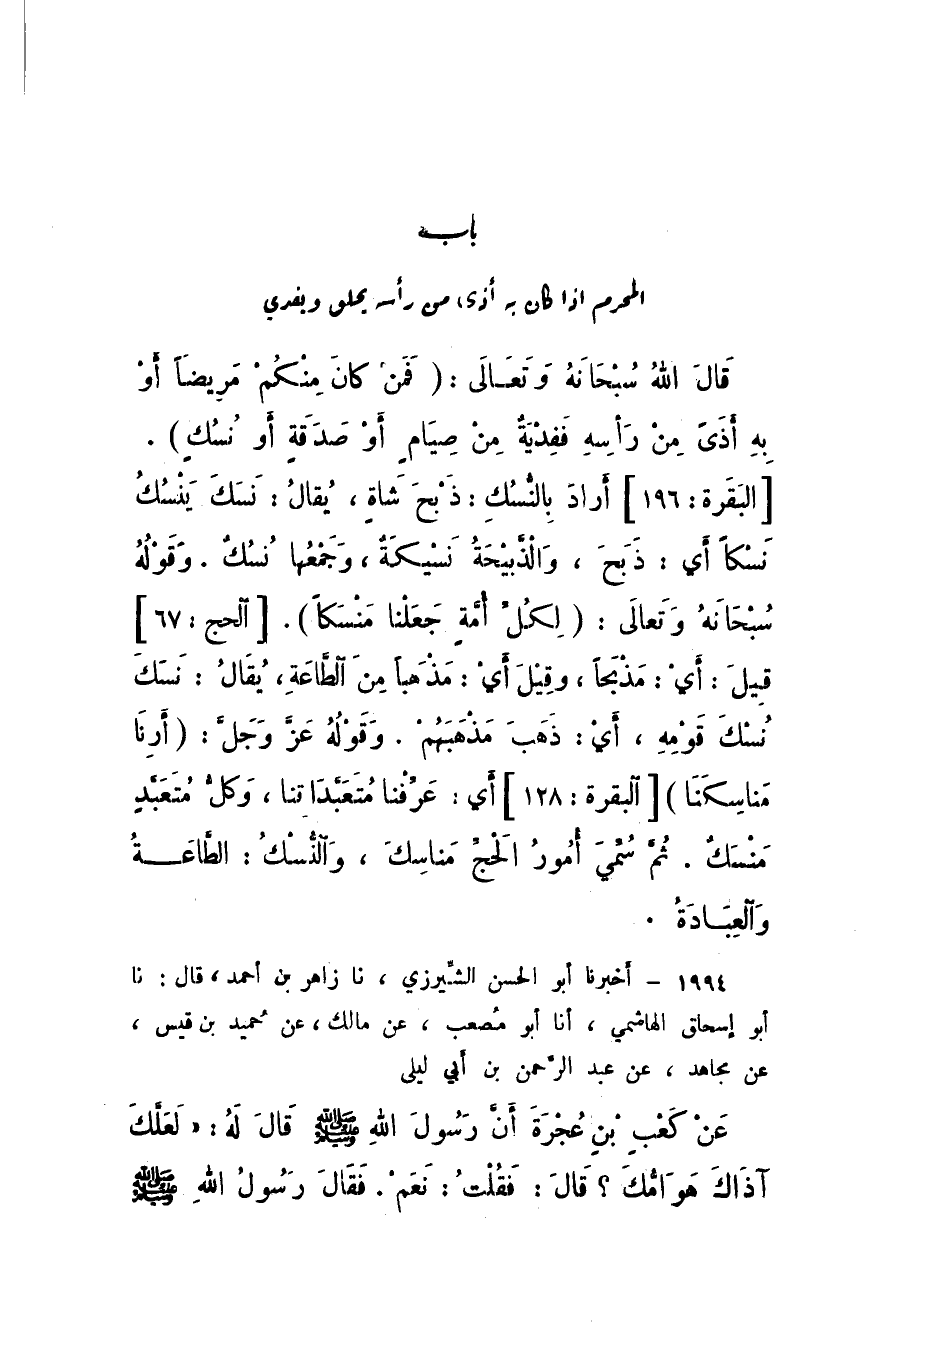 باب
المحرم اذا كان به أذى من رأسه يحلق ويفدي
قَالَ اللهُ سُبْحَانَهُ وَتَعَالَى : ( فَمَنْ كَانَ مِنْكُمْ مَرِيضاً أَوْ
بِهِ أَذَىً مِنْ رَأْسِهِ فَفِدْيَةٌ مِنْ صِيَامٍ أَوْ صَدَقَةٍ أَو نُسُكٍ ) .
[ البَقَرة : ١٩٦ ] أَرادَ بِالنُّسُكِ : ذَبْحَ شَاةٍ ، يُقالُ : نَسَكَ يَنْسُكُ
نَسْكاً أَي : ذَبَحَ ، وَالْذَّبِيْحَةُ نَسِيْكَةٌ ، وَجَمْعُها نُسُكٌ . وَقَوْلُهُ
سُبْحَانَهُ وَتَعالَى : ( لِكُلِّ أُمَّةٍ جَعَلْنا مَنْسَكاً ) . [ الحج : ٦٧ ]
قِيلَ : أَيْ : مَذْبَحاً ، وقِيْلَ أَيْ : مَذْهَباً مِنَ الطَّاعَةِ ، يُقَالُ : نَسَكَ
نُسْكَ قَوْمِهِ ، أَيْ : ذَهَبَ مَذْهَبَهُمْ . وَقَوْلُهُ عَزَّ وَجَلَّ : ( أَرِنَا
مَناسِكَنَا ) [ البقرة : ١٢٨ ] أَي : عَرِّفْنا مُتَعَبَّدَاتنا ، وَكلُّ مُتَعَبَّدٍ
مَنْسَكٌ . ثُمَّ سُمِّيَ أُمُورُ الْحَجِّ مَناسِكَ ، وَالنُّسْكُ : الطَّاعَـــةُ
وَالعِبَــادَةُ .
١٩٩٤ – أخبرنا أبو الحسن الشِّيرزي ، نا زاهر بن أحمد ، قال : نا
أبو إسحاق الهاشمي ، أنا أبو مُصعب ، عن مالك ، عن حُميد بن قيس ،
عن مجاهد ، عن عبد الرَّحمن بن أبي ليلى
عَنْ كَعْبِ بْنِ عُجْرَةَ أَنَّ رَسُولَ اللهِ ﷺ قَالَ لَهُ : « لَعَلَّكَ
آذَاكَ هَوَامُّكَ ؟ قَالَ : فَقُلْتُ : نَعَمْ . فَقَالَ رَسُولُ اللهِ ﷺ